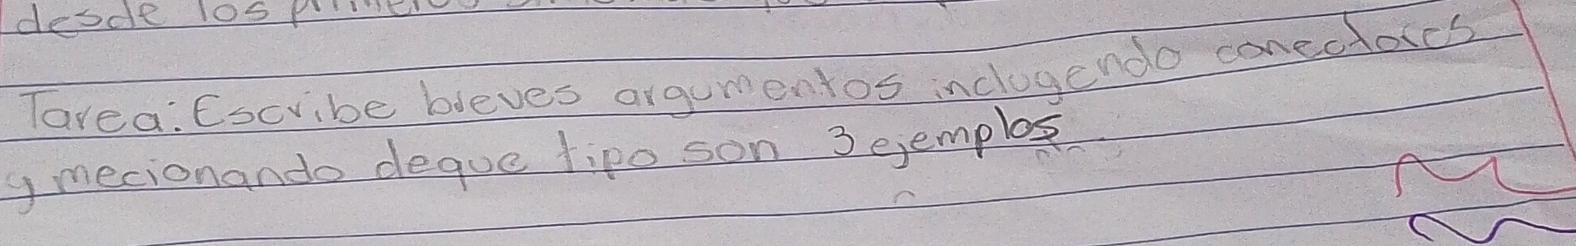 desde los
Tarea: Escribe breves argumentos inclugendo conectores
y mecionando deque tipo son 3 ejemplos